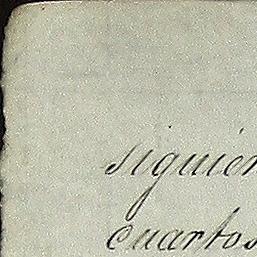 siguien
cuartos